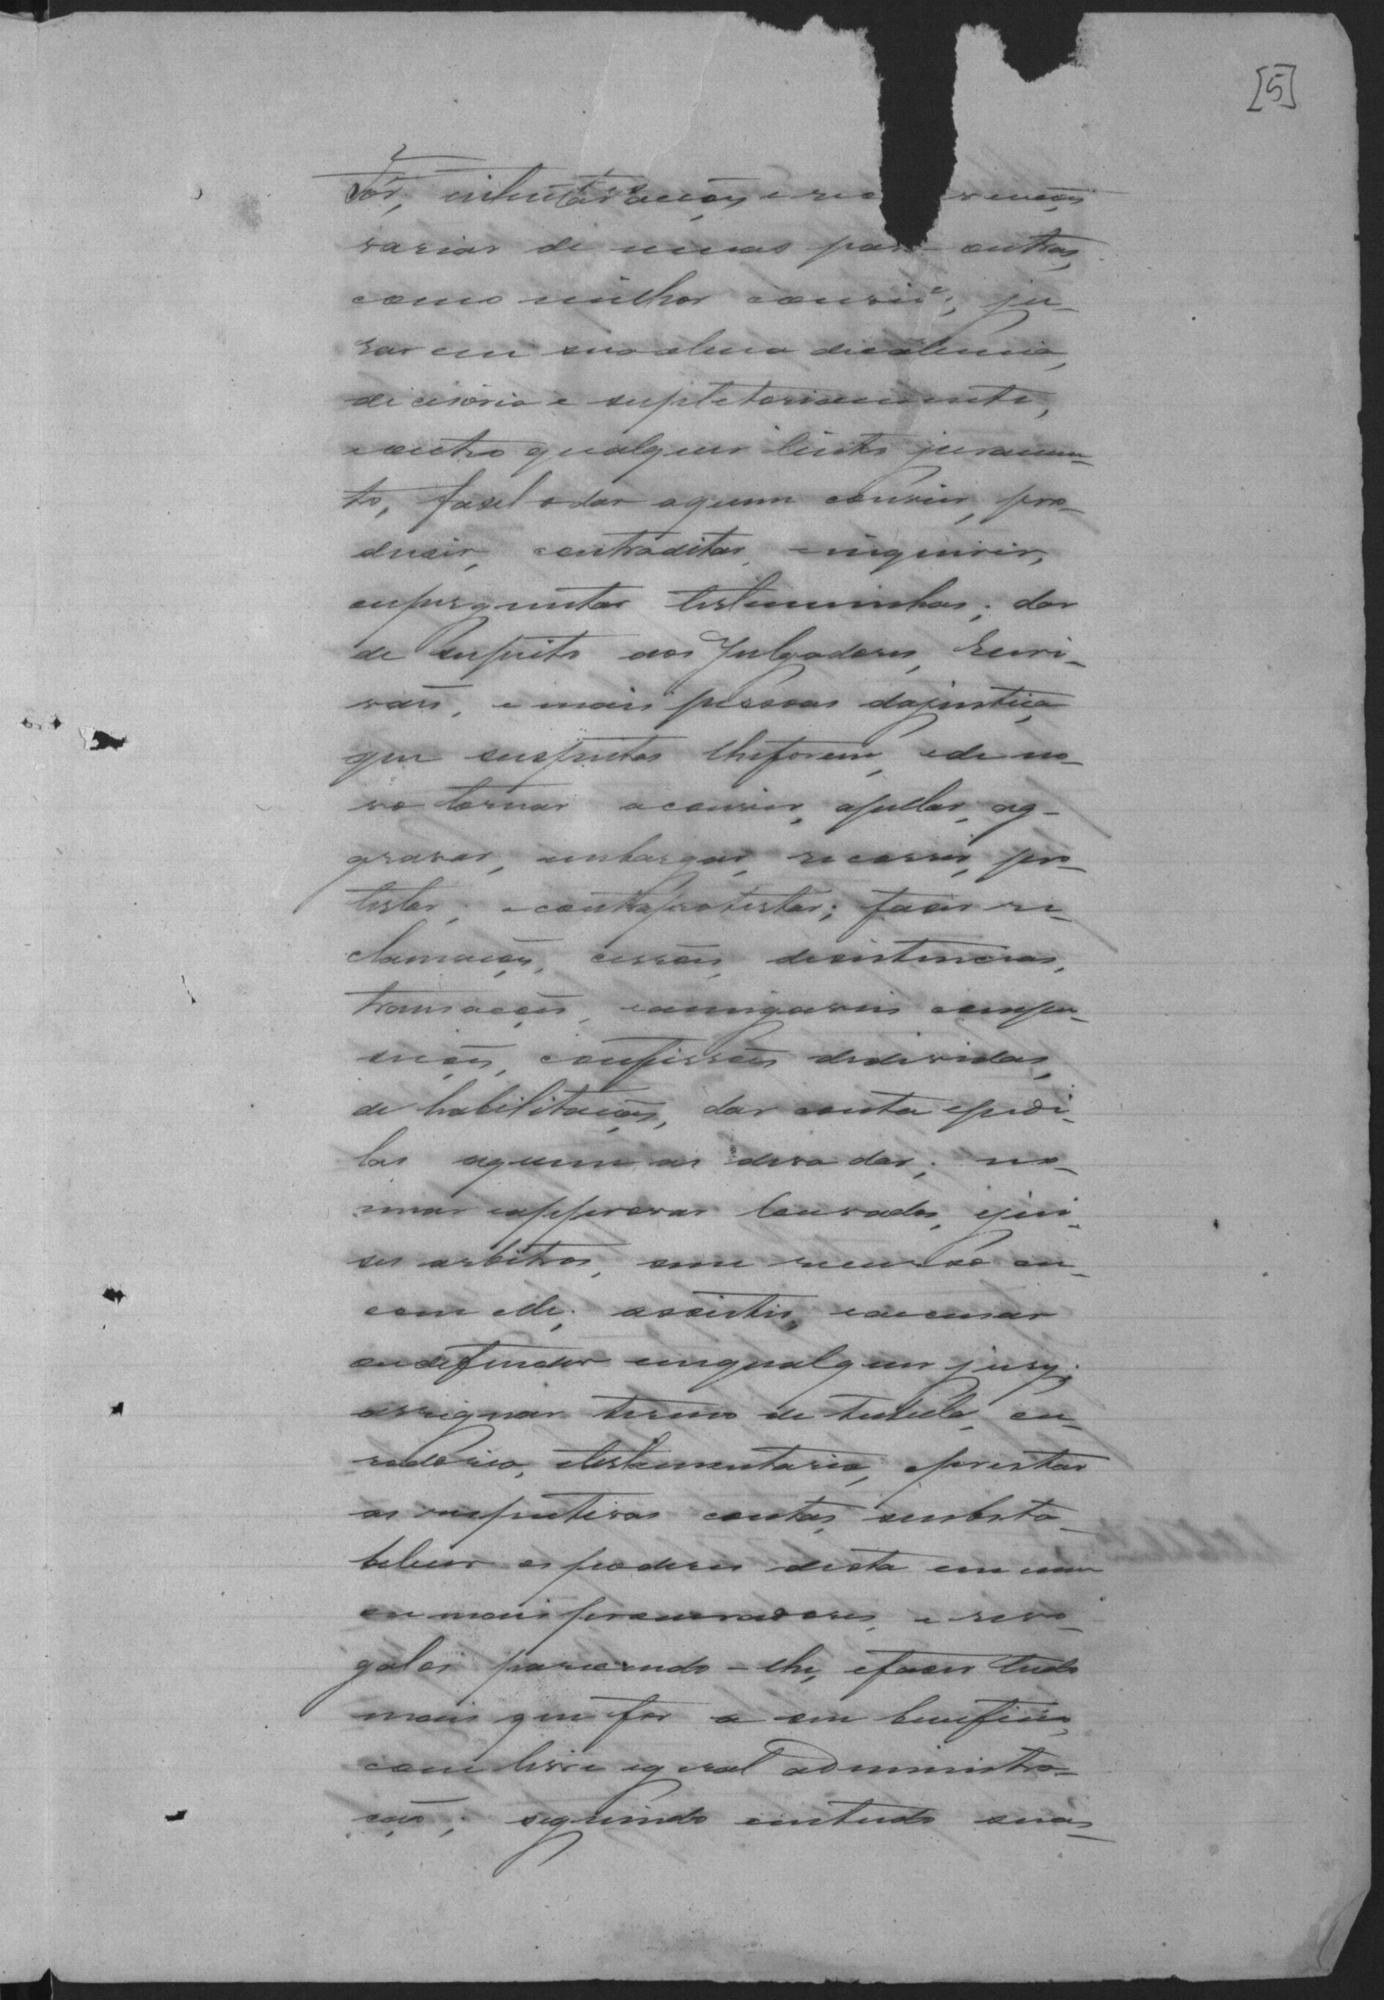 [5]
Fôr, intentar acções e
variar de umas para outras,
como milhor convier; ju-
rar em sua alma decalumnia,
decisoria e supletoriamente,
eoutro qualquer licito juramen-
to, fasel odar aquem convier, pro-
dusir, contraditar, einquirir,
eoperguntar testeminhas; dar
de suspeito aos Julgadores, Escri-
vães, e mais pessoas dajustiça
que suspeitos lheforem, ede no-
vo tornar aconvir, apellar, ag-
gravar, embargar, recorrer, pro-
testar, econtraprotestar; faser re-
clamações, cessões, desistencias,
transacções, eamigaveis compo-
sições, confissões dedividas,
de habilitações, dar conta epedi-
las aquem as deva dar; no-
mear eapprovar louvados, ejui-
ses arbitros, com recurso ou
sem elle; assistir, eaccusar
oudefender emqualquer jury;
assignar termo de tutela, cu-
radoria, etestamentaria, eprestar
as respectivas contas, substa-
belecer os poderes desta em um
ou mais procuradores, e revo-
galos parecendo-lhe, efaser tudo
mais que for a seu beneficio,
com livre egeral administra-
ção; seguindo emtudo suas